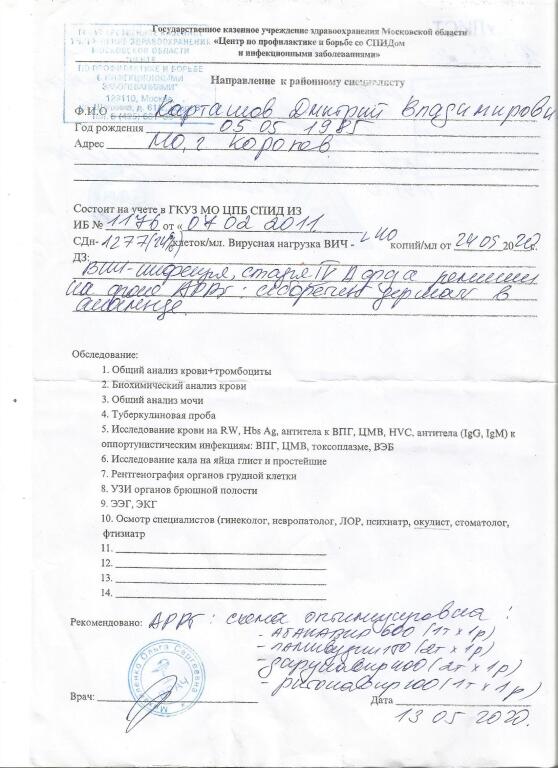 Государственное казенное учреждение здравоохранения Московской области
«Центр по профилактике и борьбе со СПИДом
и инфекционными заболеваниями»
МОСКОВСКОЙ ОБЛАСТИ
ПО ПРОФИЛАКТИКЕ И БОРЬБЕ
И ИНФЕКЦИОННЫМИ
ЗАБОЛЕВАНИЯМИ"
129110, Москва
Направление к районному специалисту
Ф.И.О Карташов Дмитрий Владимирови
Год рождения 05 05 1985
Адрес МО, г
Состоит на учете в ГКУЗ МО ЦПБ СПИД ИЗ
ИБ № 1176 от « 07 02 2011
СДн- 1277 клеток/мл. Вирусная нагрузка ВИЧ - копий/мл от 24 05 20
ДЗ:
ВИЧ-инфекция, стадия IV А фаза ремиссии
на фоне АРВТ: себорейный дерматит в
анамнезе.
Обследование:
1. Общий анализ крови+тромбоциты
2. Биохимический анализ крови
3. Общий анализ мочи
4. Туберкулиновая проба
5. Исследование крови на RW, Hbs Ag, антитела к ВПГ, ЦМВ, HVC, антитела (IgG, IgM) к
оппортунистическим инфекциям: ВПГ, ЦМВ, токсоплазме, ВЭБ
6. Исследование кала на яйца глист и простейшие
7. Рентгенография органов грудной клетки
8. УЗИ органов брюшной полости
9. ЭЭГ, ЭКГ
10. Осмотр специалистов (гинеколог, невропатолог, ЛОР, психиатр, окулист, стоматолог,
фтизиатр
11.
12.
13.
14.
Рекомендовано: АРВТ: схема оптимизирована!
- абакавир 600 (1т х 1р)
- ламивудин 150 (2т х 1р)
- дарунавир 400 (2т х 1р)
- ритонавир 100 (1т х 1р)
Ольга Сергеевна
Врач: Дата
13 05 2020.